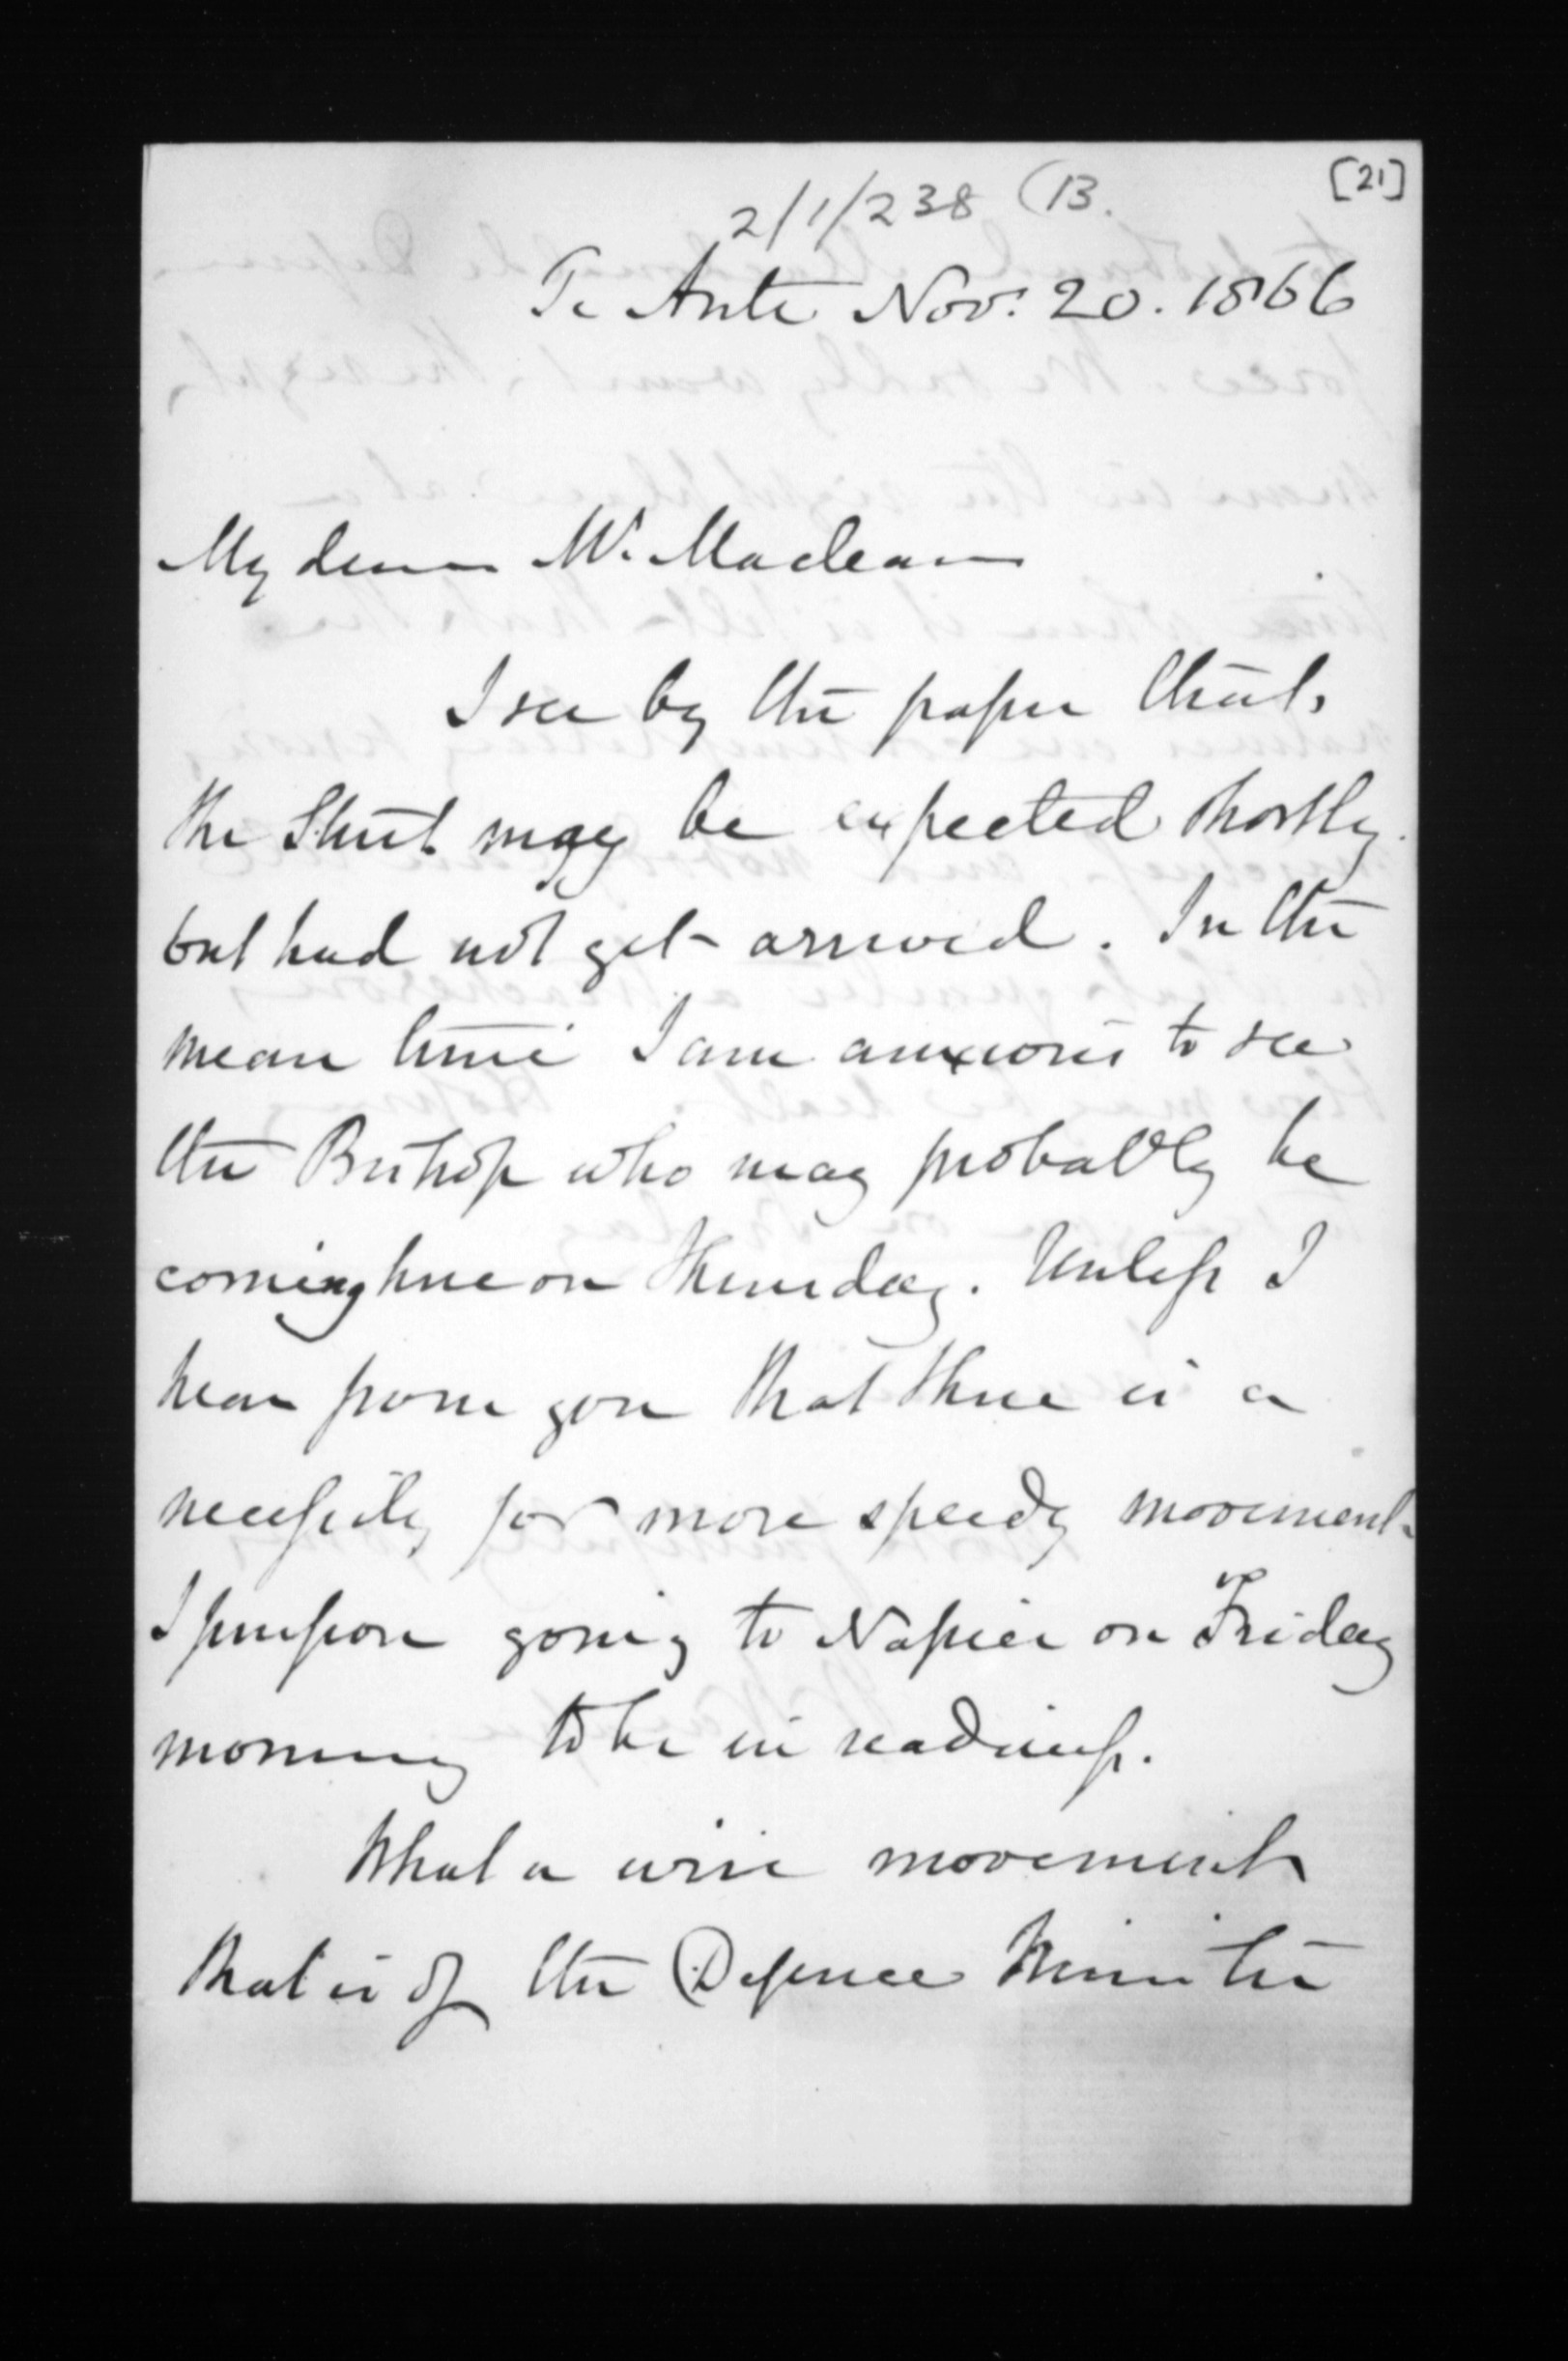 [21]
2/1/238 (B.
Te Aute Nov. 20. 1866
My dear Mr. Maclean
I see by the paper that
the Sturt may be expected shortly.
but had not yet arrived. In the
mean time I am anxious to see
the Bishop who may probably be
coming here on Thursday. Unless I
hear from you that there is a
necessity for more speedy movement
I purpose going to Napier on Friday
morning to be in readiness.
What a wise movement
that is of the Defence Minister